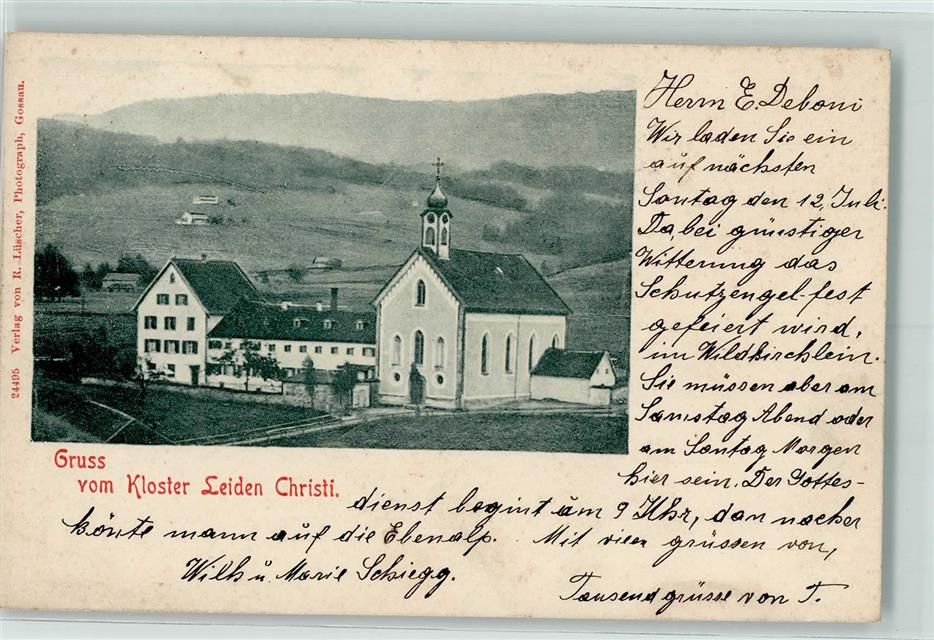 24495 Verlag von R. Lüscher, Photograph, Gossau.
Gruss
vom Kloster Leiden Christi.
Herrn E. Deboni
Wir laden Sie ein
auf nächsten
Sontag den 12. Juli.
Da, bei günstiger
Witterung das
Schutzengel-fest
gefeiert wird,
im Wildkirchlein.
Sie müssen aber am
Samstag Abend oder
am Sontag Morgen
hier sein. Der Gottes-
dienst begint um 9 Uhr, dan nacher
könte mann auf die Ebenalp. Mit vielen grüssen von,
Wilh u. Marie Schiegg.
Tausend grüsse von T.